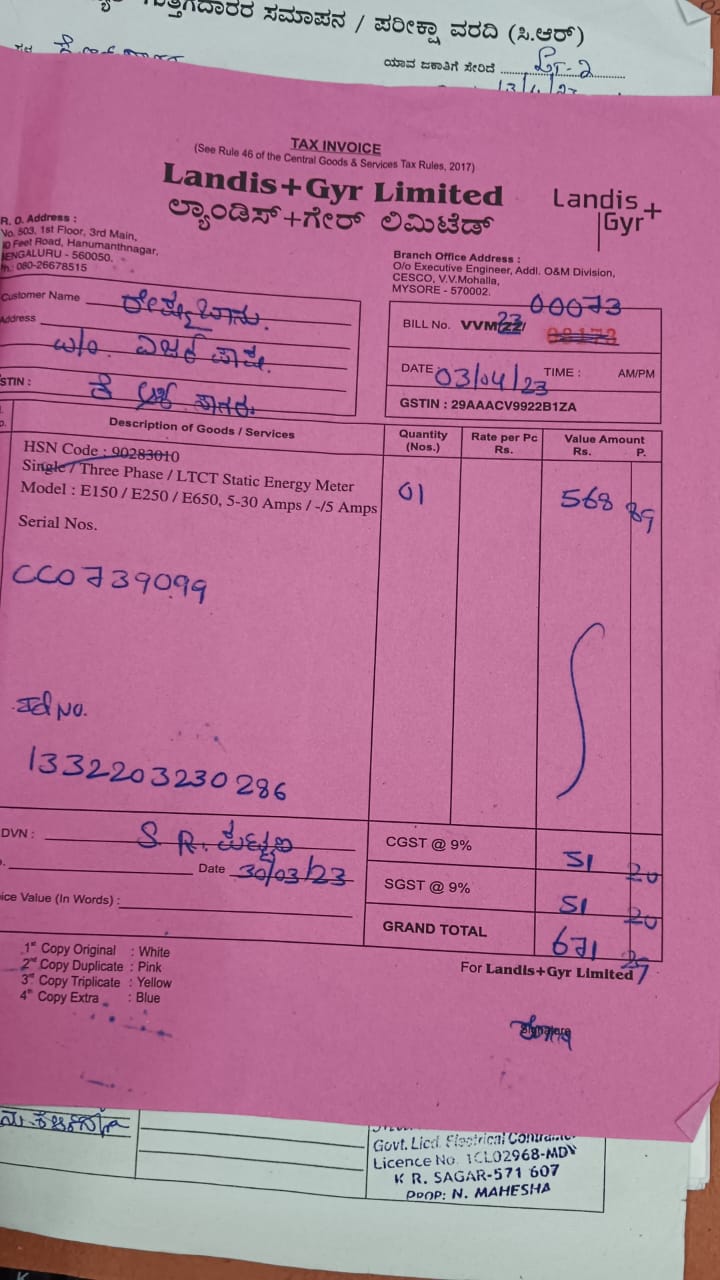 ಗುತ್ತಿಗೆದಾರರ ಸಮಾಪನ / ಪರೀಕ್ಷಾ ವರದಿ (ಸಿ.ಆರ್)
ಯಾವ ಜಕಾತಿಗೆ ಸೇರಿದೆ LT-2
13/4/23
TAX INVOICE
(See Rule 46 of the Central Goods & Services Tax Rules, 2017)
Landis+Gyr Limited
Landis+
Gyr
ಲ್ಯಾಂಡಿಸ್+ಗೇರ್ ಲಿಮಿಟೆಡ್
R. O. Address :
No. 503, 1st Floor, 3rd Main,
Feet Road, Hanumanthnagar,
BENGALURU - 560050.
Ph.: 080-26678515
Branch Office Address :
O/o Executive Engineer, Addl. O&M Division,
CESCO, V.V.Mohalla,
MYSORE - 570002.
Customer Name
Address
GSTIN :
00073
BILL No. VVM/23/
DATE 03/04/23 TIME : AM/PM
GSTIN : 29AAACV9922B1ZA
Description of Goods / Services
Quantity (Nos.)
Rate per Pc Rs.
Value Amount Rs. P.
HSN Code : 90283010
Single / Three Phase / LTCT Static Energy Meter
Model : E150 / E250 / E650, 5-30 Amps / -/5 Amps
01
568 89
Serial Nos.
CC0739099
No.
1332203230286
DVN : S. R.
Date 30/03/23
Invoice Value (In Words) :
CGST @ 9% 51 20
SGST @ 9% 51 20
GRAND TOTAL 671 29
1st Copy Original : White
2nd Copy Duplicate : Pink
3rd Copy Triplicate : Yellow
4th Copy Extra : Blue
For Landis+Gyr Limited
Signature
Govt. Licd. Electrical Contractor
Licence No. 1CL02968-MDY
K R. SAGAR-571 607
PROP: N. MAHESHA